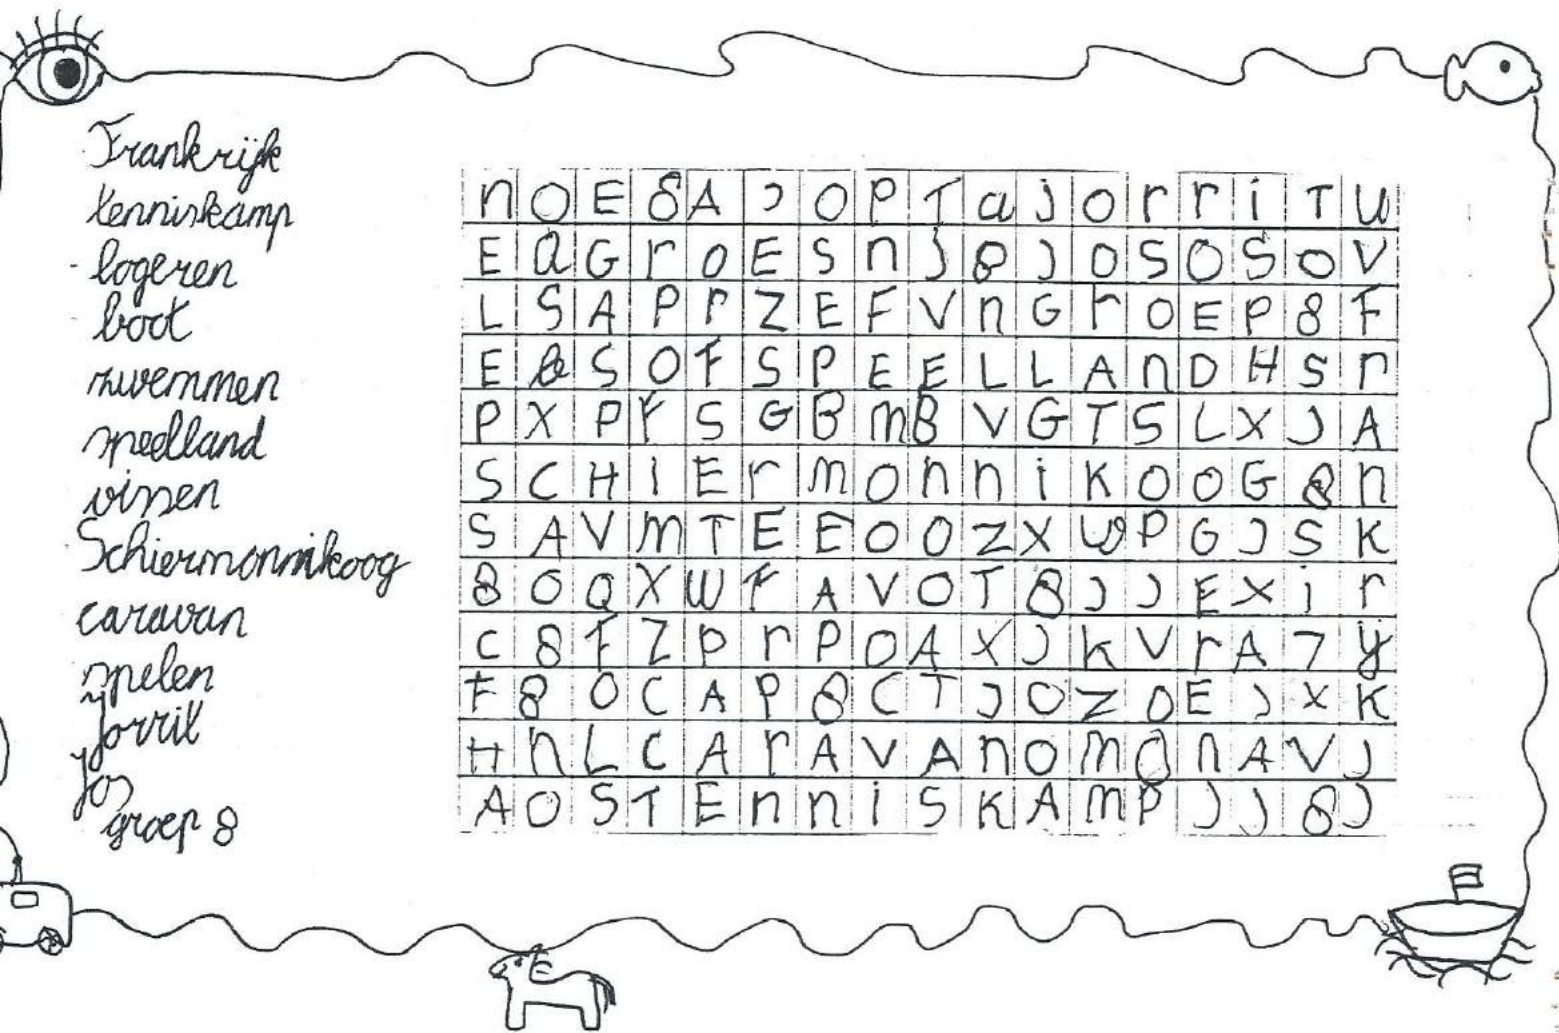 Frankrijk
tenniskamp
logeren
boot
zwemmen
speelland
vissen
Schiermonnikoog
caravan
spelen
Jorrit
Jos
groep 8
n O E 8 A J O P T a j o r r i T u
E Q G r O E S n J 8 J O S O S O V
L S A P r Z E F V n G r O E P 8 F
E 8 S O F S P E E L L A n D H S r
P X P F S G B m B V G T S L X J A
S C H I E r m o n n i K O O G 8 n
S A V m T E E O O Z X W P G J S K
8 O Q X W F A V O T 8 J J E X i r
C 8 F Z P r P O A X J K V r A 7 y
F 8 O C A P 8 C T J O Z O E J X K
H n L C A r A V A n O m O n A V J
A O S T E n n i S K A m P J J 8 J